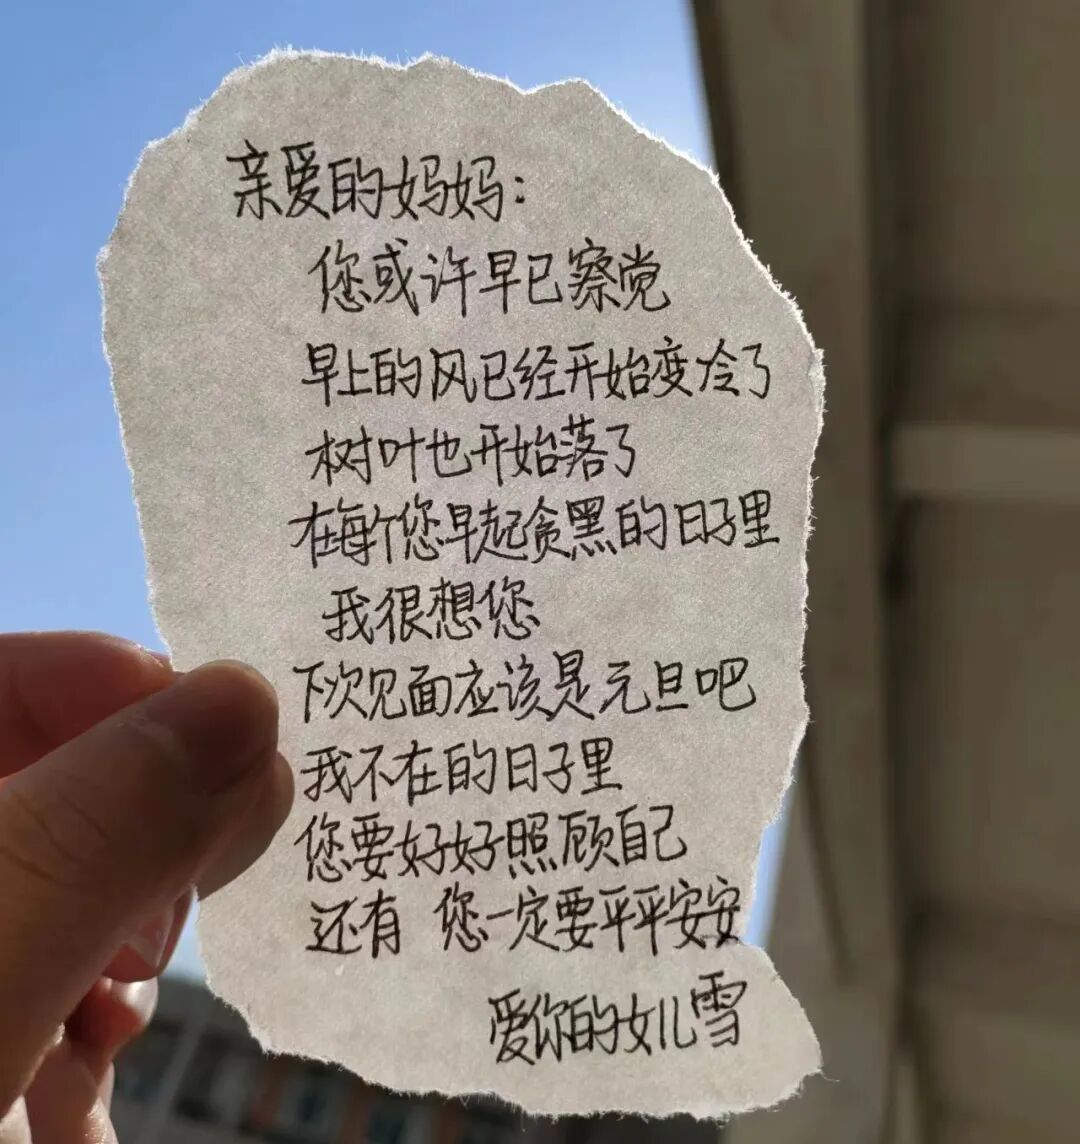 亲爱的妈妈：
您或许早已察觉
早上的风已经开始变冷了
树叶也开始落了
在每个您早起贪黑的日子里
我很想您
下次见面应该是元旦吧
我不在的日子里
您要好好照顾自己
还有 您一定要平平安安
爱你的女儿雪